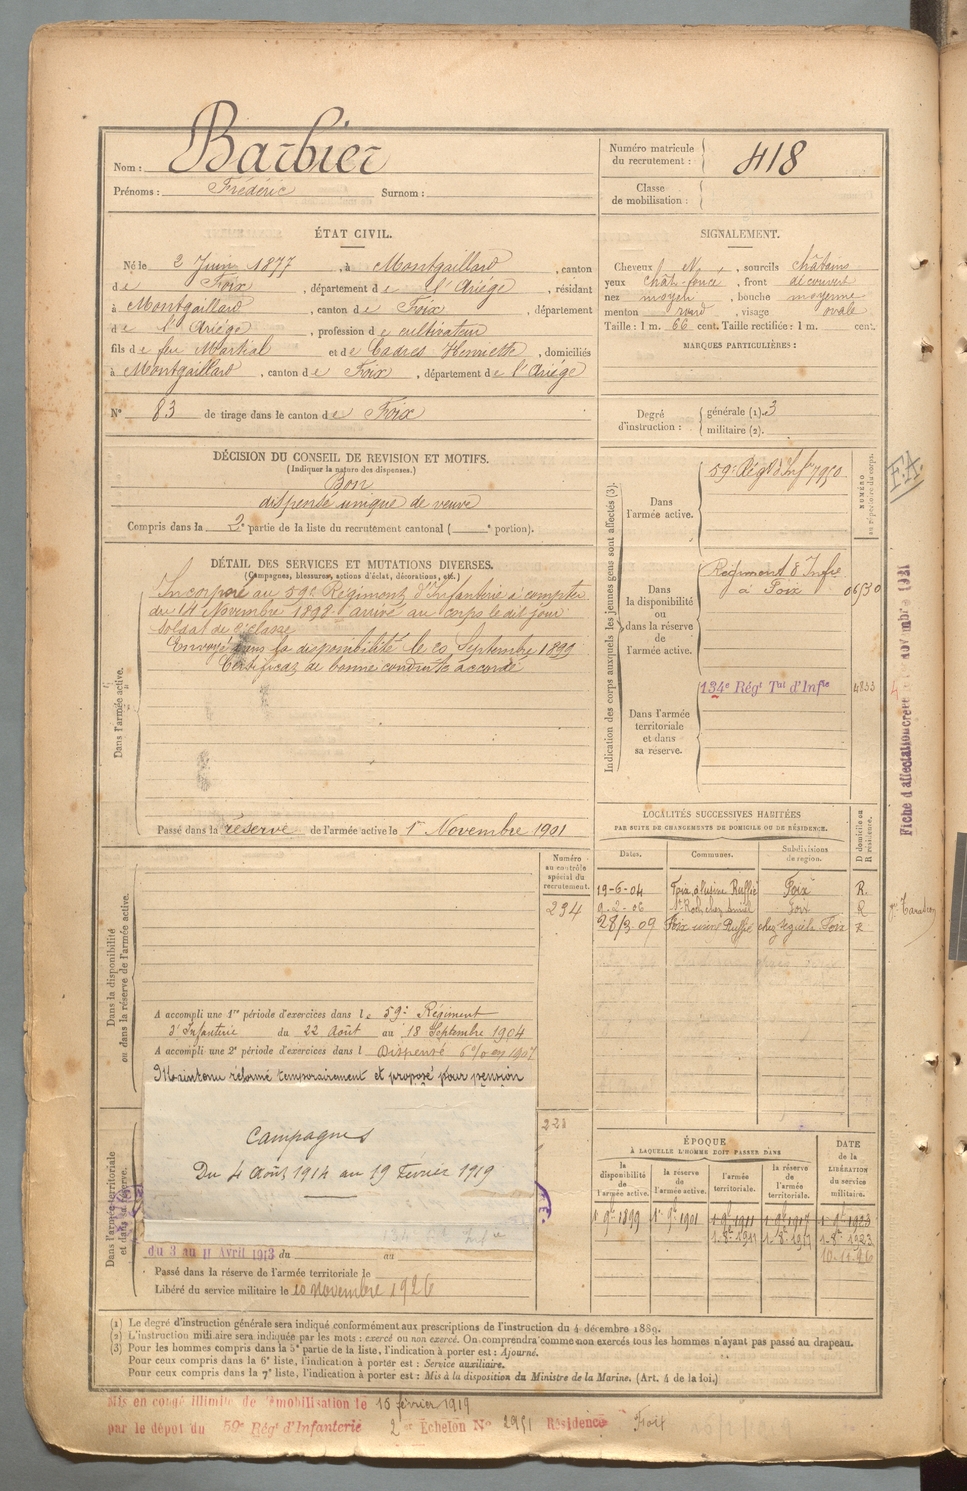 Nom : Barbier
Prénoms : Frédéric Surnom :
Numéro matricule du recrutement : 418
Classe de mobilisation :
ÉTAT CIVIL.
Né le 2 Juin 1877, à Montgaillard, canton
de Foix, département de l'Ariége, résidant
à Montgaillard, canton de Foix, département
de l'Ariége, profession de cultivateur
fils de feu Martial et de Cadres Henriette, domiciliés
à Montgaillard, canton de Foix, département de l'Ariége
N° 83 de tirage dans le canton de Foix
SIGNALEMENT.
Cheveux N., sourcils châtains
yeux chât-foncé, front découvert
nez moyen, bouche moyenne
menton rond, visage ovale
Taille : 1 m. 66 cent. Taille rectifiée : 1 m. cent.
MARQUES PARTICULIÈRES :
Degré d'instruction : générale (1). 3
militaire (2).
DÉCISION DU CONSEIL DE REVISION ET MOTIFS.
(Indiquer la nature des dispenses.)
Bon
dispensé unique de veuve
Compris dans la 2e partie de la liste du recrutement cantonal ( e portion).
DÉTAIL DES SERVICES ET MUTATIONS DIVERSES.
(Campagnes, blessures, actions d'éclat, décorations, etc.)
Dans l'armée active.
Incorporé au 59e Régiment d'Infanterie à compter
du 14 Novembre 1898 arrivé au corps le dit jour
soldat de 2e classe
Envoyé dans la disponibilité le 20 Septembre 1899
Certificat de bonne conduite accordé
Passé dans la réserve de l'armée active le 1er Novembre 1901
Indication des corps auxquels les jeunes gens sont affectés (3).
NUMÉRO au répertoire du corps.
Dans l'armée active.
59e Régt d'Infie 7950
Dans la disponibilité ou dans la réserve de l'armée active.
Régiment d'Infie
à Foix
Dans l'armée territoriale et dans sa réserve.
134e Régt Tal d'Infie 4855
F.A.
Fiche d'affectation
LOCALITÉS SUCCESSIVES HABITÉES
PAR SUITE DE CHANGEMENTS DE DOMICILE OU DE RÉSIDENCE.
Dates. Communes. Subdivisions de région. D domicile ou R résidence.
19-6-04 Foix, à l'usine Ruffié Foix R.
9-2-06 St Roch chez Foix R
28/3 09 Foix usine Ruffié chez Foix R
Dans la disponibilité ou dans la réserve de l'armée active.
Numéro au contrôle spécial du recrutement.
234
A accompli une 1re période d'exercices dans le 59e Régiment
d'Infanterie du 22 Août au 18 Septembre 1904
A accompli une 2e période d'exercices dans l Dispensé 6% en 1907
Maintenu réformé temporairement et proposé pour pension
Dans l'armée territoriale et dans sa réserve.
Campagnes
Du 4 Août 1914 au 19 Février 1919
du 3 au 11 Avril 1913 du au
Passé dans la réserve de l'armée territoriale le
Libéré du service militaire le 10 novembre 1926
ÉPOQUE
À LAQUELLE L'HOMME DOIT PASSER DANS
la disponibilité de l'armée active. la réserve de l'armée active. l'armée territoriale. la réserve de l'armée territoriale. DATE de la LIBÉRATION du service militaire.
1er 9bre 1899 1er 9bre 1901 1-9bre 1911 1-9bre 1917 1-9bre 1923
1-8bre 1911 1-8bre 1917 1-8bre 1923
10-11-26
(1) Le degré d'instruction générale sera indiqué conformément aux prescriptions de l'instruction du 4 décembre 1889.
(2) L'instruction militaire sera indiquée par les mots : exercé ou non exercé. On comprendra comme non exercés tous les hommes n'ayant pas passé au drapeau.
(3) Pour les hommes compris dans la 5e partie de la liste, l'indication à porter est : Ajourné.
Pour ceux compris dans la 6e liste, l'indication à porter est : Service auxiliaire.
Pour ceux compris dans la 7e liste, l'indication à porter est : Mis à la disposition du Ministre de la Marine. (Art. 4 de la loi.)
Mis en congé illimité de démobilisation le 15 février 1919
par le dépot du 59e Régt d'Infanterie 2 Echelon N° 2951 Résidence Foix